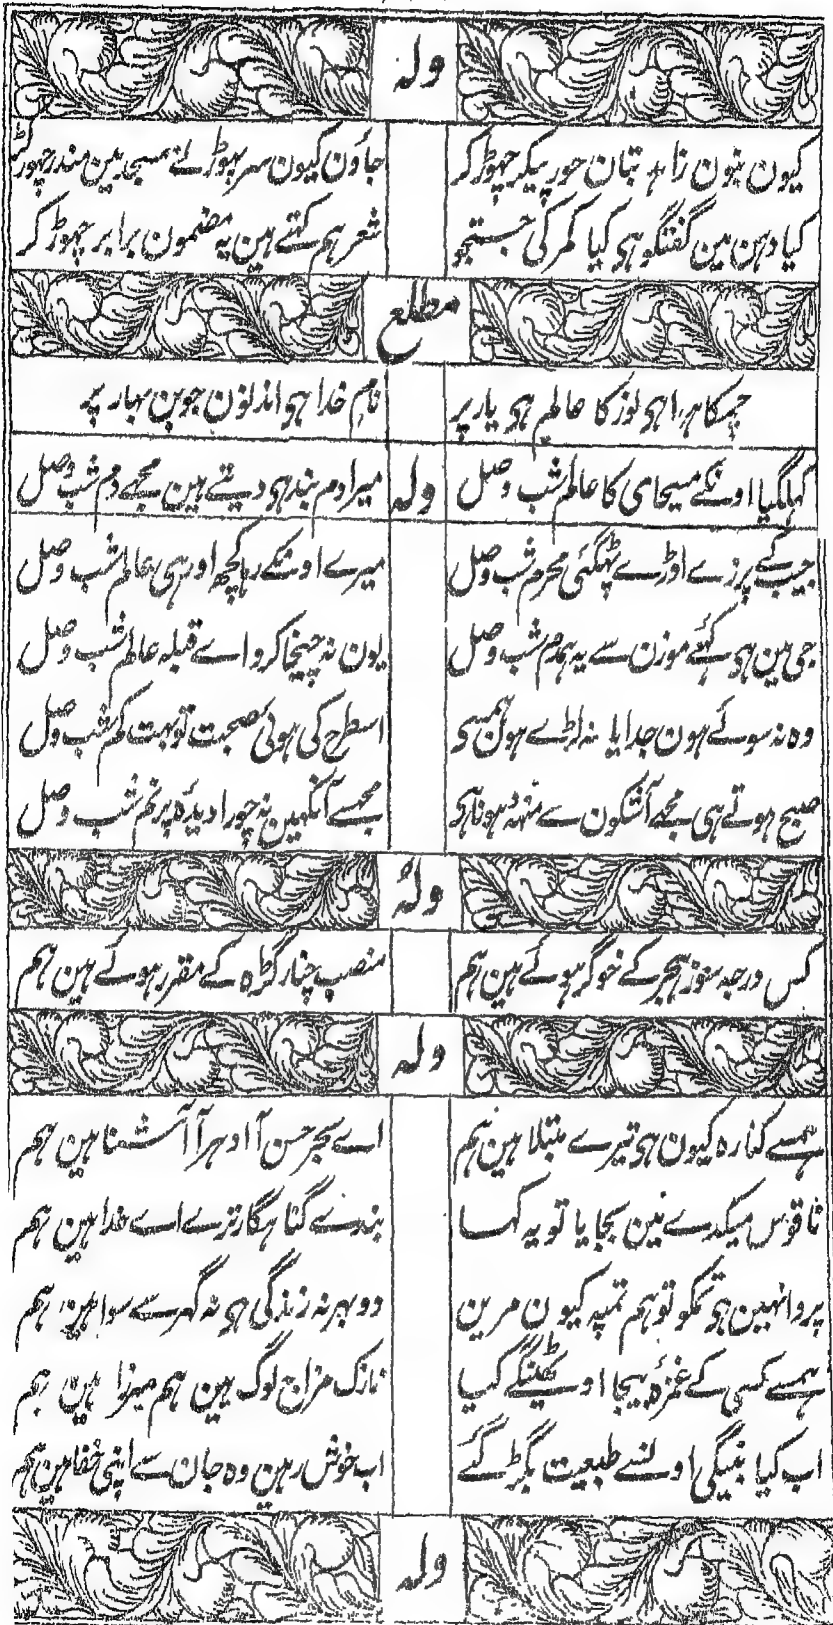 ولہ
کیون بنون زاہد بتان حور پیکر چھوڑ کر جاؤن کیون سر پھوڑنے مسجد مین مندر چھوڑ کر
کیا دہن مین گفتگو ہی کیا کمر کی جستجو شعر ہم کہتے ہین یہ مضمون برابر چھوڑ کر
مطلع
چمکا ہوا ہی نور کا عالم ہی یار پر نام خدا ہی اندنون جوبن بہار پر
کہلگیا اونکے مسیحائی کا عالم شب وصل ولہ میرا دم بند ہی دیتے ہین مجھے دم شب وصل
جیب کے پرزے اوڑے پھٹگئی محرم شب وصل میرے اونکے رہا کچھ اور ہی عالم شب وصل
جی مین ہی کہئے موزن سے یہ ہمدم شب وصل یون نہ چیخا کرو اے قبلہ عالم شب وصل
وہ نہ سوئے ہون جدا یا نہ لڑے ہون ہمسے اسطرح کی ہوئی صحبت تو بہت کم شب وصل
صبح ہوتے ہی مجھے آشکون سے منھ دھونا ہی مجھسے آنکھین نہ چورا دیدہ پرنم شب وصل
ولہ
کس درجہ سوز ہجر کے خوگر ہوئے ہین ہم منصب چنار گڑہ کے مقرر ہوئے ہین ہم
ولہ
ہمسے کنارہ کیون ہی تیرے مبتلا ہین ہم اے بحر حسن آ ادہر آ آشنا ہین ہم
ناقوس میکدے مین بجایا تو یہ کہا بندے گناہگار ترے اے خدا ہین ہم
پروا نہین ہی تمکو تو ہم تمپہ کیون مرین دوبہر نہ زندگی ہی نہ گہر سے سوا ہین ہم
ہمسے کسی کے غمزہ بیجا اوٹھینگے کیا نازک مزاج لوگ ہین ہم میرزا ہین ہم
اب کیا بنیگی اونسے طبیعت بگڑ گئے اب خوش رہین وہ جان سے اپنی خفا ہین ہم
ولہ